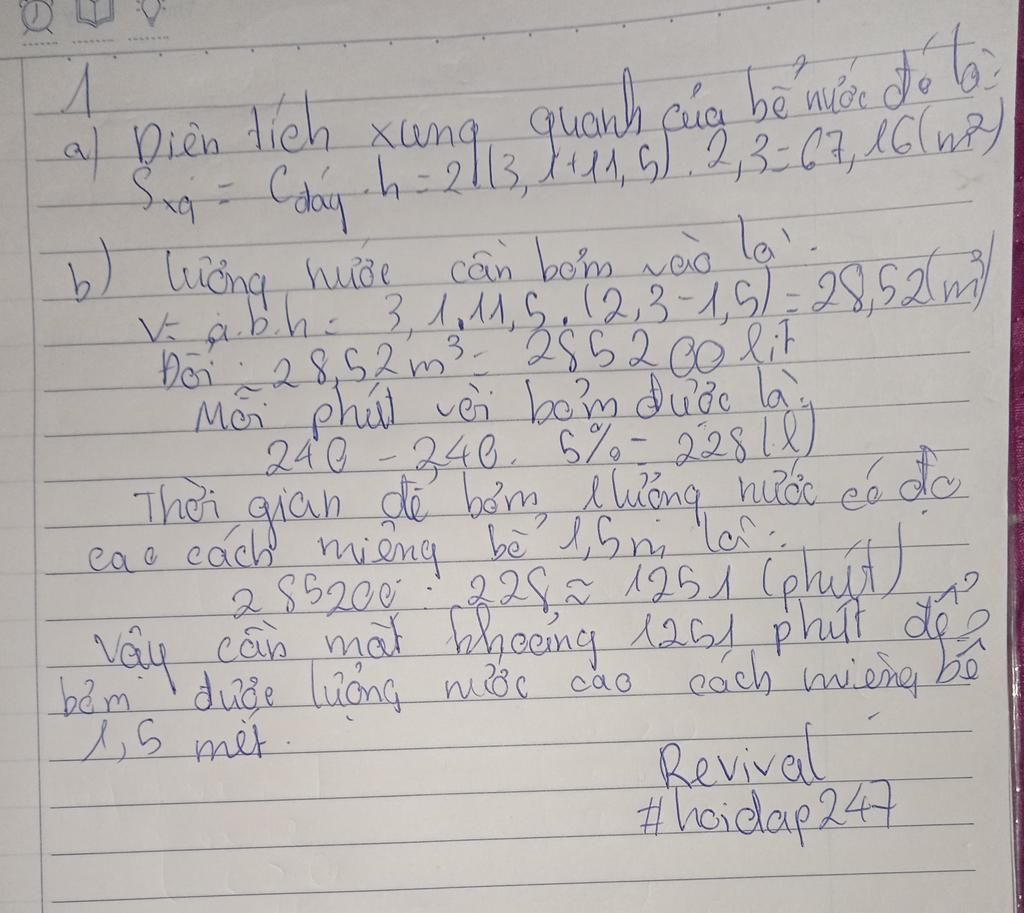 1
a) Diện tích xung quanh của bể nước đó là:
Sxq = Cđáy . h = 2(3,1+11,5) . 2,3 = 67,16 (m²)
b) lượng nước cần bơm vào là:
V = a.b.h = 3,1.11,5.(2,3-1,5) = 28,52 (m³)
Đổi: 28,52 m³ = 285200 lít
Mỗi phút vòi bơm được là:
240 - 240. 5% = 228 (l)
Thời gian để bơm lượng nước có độ
cao cách miệng bể 1,5m là:
285200 : 228 ≈ 1251 (phút)
Vậy cần mất khoảng 1251 phút để
bơm được lượng nước cao cách miệng bể
1,5 mét.
Revival
#hoidap247